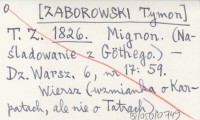 [ZABOROWSKI Tymon]
T. Z. 1826. Mignon. (Na-
śladowanie z Göthego.) —
Dz. Warsz. 6, nr 17: 59.
Wiersz (wzmianka o Kar-
patach, ale nie o Tatrach).